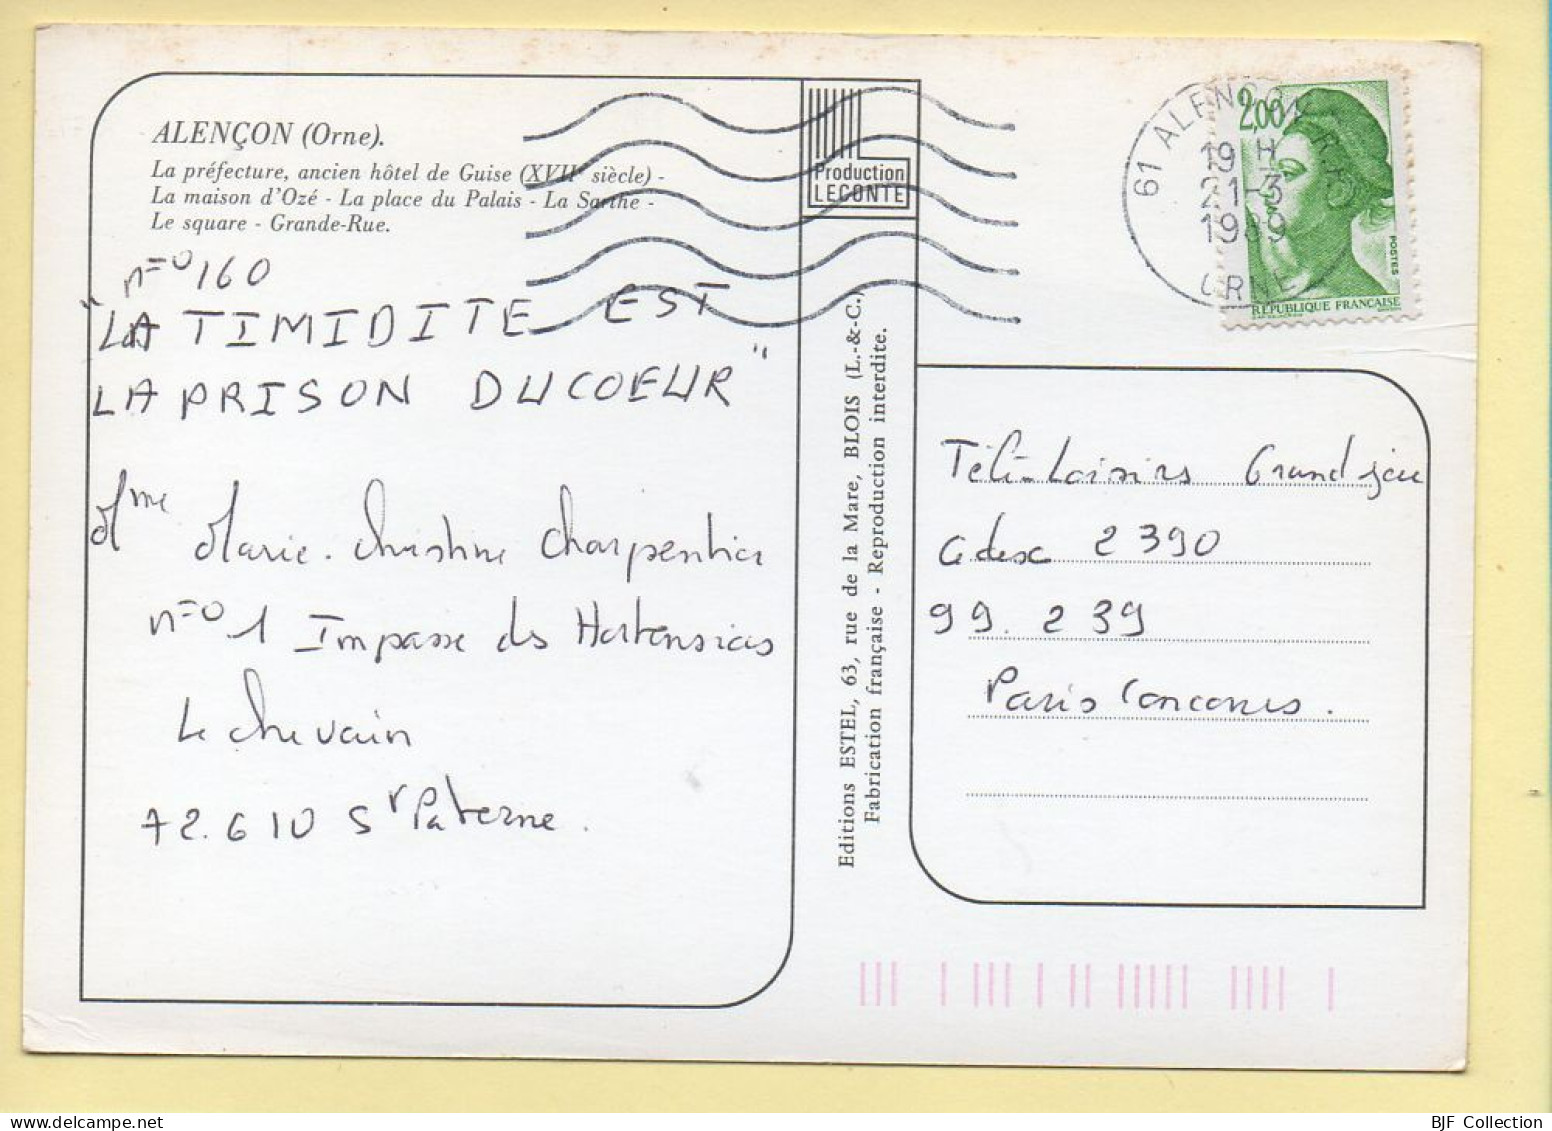 ALENÇON (Orne).
La préfecture, ancien hôtel de Guise (XVIIe siècle) -
La maison d'Ozé - La place du Palais - La Sarthe -
Le square - Grande-Rue.
n=o 160
"LA TIMIDITE EST
LA PRISON DU COEUR"
Mme Marie-Christine Charpentier
n=o 1 Impasse des Hortensias
Le Chevain
72.610 St Paterne.
Production
LECONTE
Editions ESTEL, 63, rue de la Mare, BLOIS (L.-&-C.)
Fabrication française - Reproduction interdite.
61 ALENCON R.P.
19 H
21-3
1989
ORNE
2,00
POSTES
REPUBLIQUE FRANÇAISE
Télé-Loisirs Grand jeu
Cedex 2390
99.239
Paris Concours.
BJF Collection